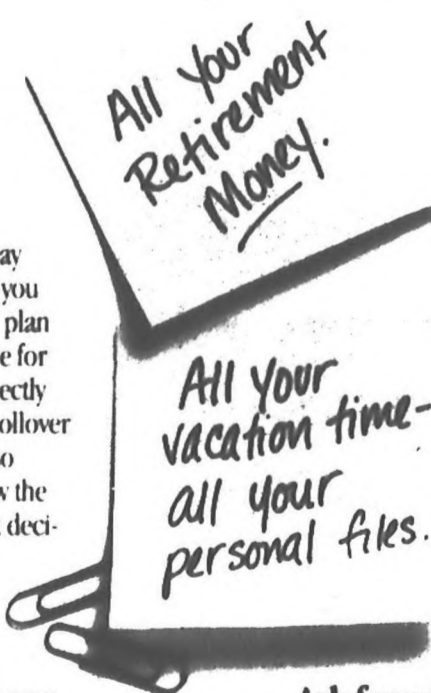 All Your
Retirement
Money.
ay
you
plan
e for
ectly
ollover
o
v the
deci-
All Your
vacation time-
all your
personal files.